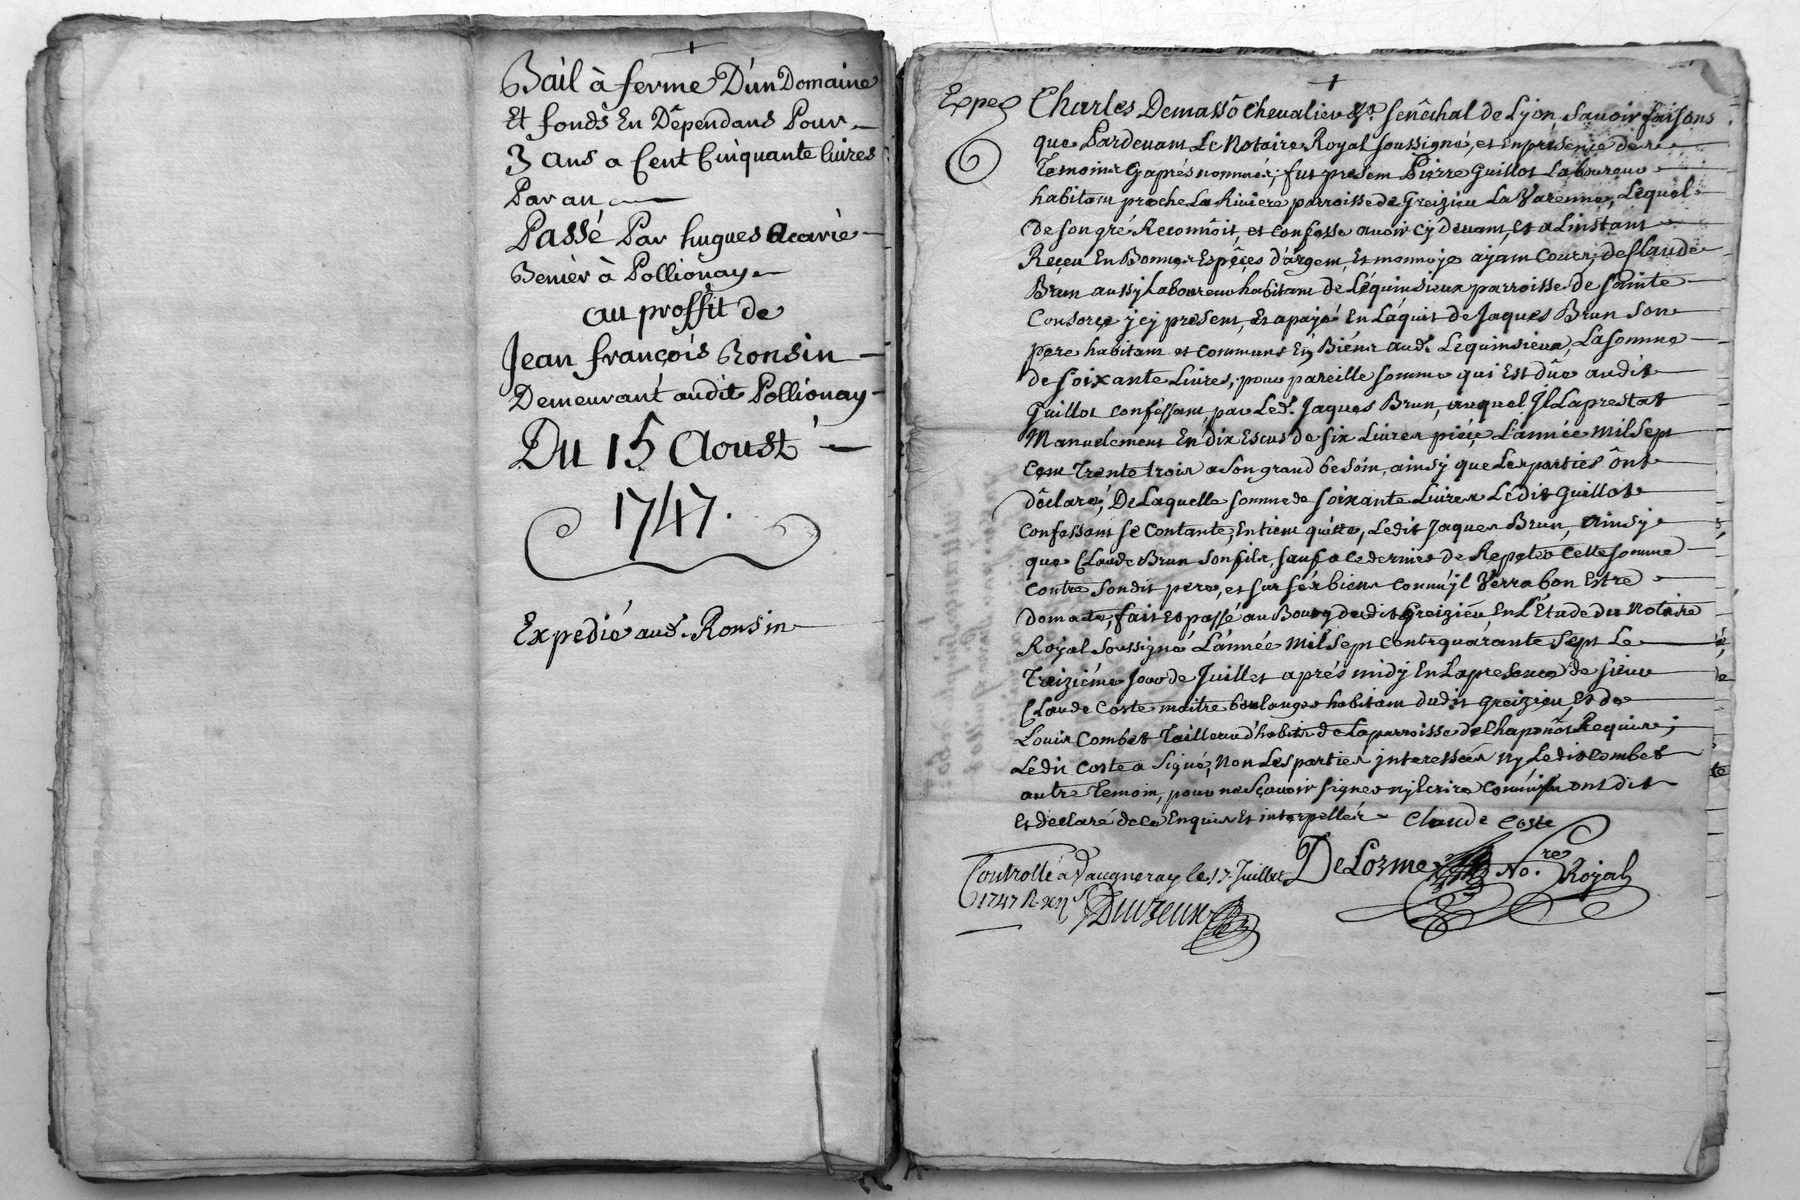 Bail à ferme D'un Domaine
Et fonds En Dépendans Pour
3 ans a Cent Cinquante livres
Par an
Passé Par hugues Acarié
Benier à Pollionay
au proffit de
Jean françois Ronsin
Demeurant audit Pollionay
Du 15 Aoust
1747.
Expedié aud. Ronsin
Exped
Charles Demasso Chevalier &a. Senêchal de Lyon, Savoir faisons
que Pardevant Le Notaire Royal soussigné, et En présence des
Temoins Cyaprés nommés, fut present Pierre Guillot Laboureur
habitant proche La Riviere parroisse de Greizieu La Varenne, Lequel
de son gré Reconnôit, et Confesse avoir cy devant, et a Linstant
Reçeu En Bonnes Espêces d'argent, Et monnoye ayant Cours, de Claude
Brun aussy Laboureur habitant de Léquinsieux parroisse de Sainte
Consorce jcy present, Et apayé En Laquit de Jaques Brun Son
pere habitant et Communs En Biens aud. Lequinsieux, La somme
de soixante Livres, pour pareille somme qui Est dûe audit
Guillot Conféssant, par Led. Jaques Brun, auquel Il La prestat
Manuelement En dix Escus de six Livres piéçe L'année Mil Sept
Cent Trente trois a Son grand besoin, ainsy que Les parties ônt
dêclaré, De Laquelle somme de soixante Livres Ledit Guillot
Confessant se Contante, En tient quitte, Ledit Jaques Brun, ainsy
que Claude Brun Son fils, sauf a ce dernier de Repeter Cette somme
Contre Sondit pere, et sur sés biens Comm'jl Verra bon Estre
Dont acte, fait Et passé au Bourg dudit Greizieu En L'Etude du Notaire
Royal Soussigné L'année Mil Sept Cent quarante Sept Le
Treiziéme Jour de Juillet aprés midy En La presence de sieur
Claude Coste maitre boulanger habitant dudit Greizieu, Et de
Louis Combet Tailleur d'habits de La parroisse de Chaponôst Requis;
Ledit Coste a Signé, Non Les parties jnteressées ny Ledit Combet
autre Temoin, pour ne Sçavoir signer ny Ecrire Comm'jls ont dit
Et declaré de ce Enquis Et interpellés Claude Coste
Controllé à Vaugneray le 17. Juillet DeLorme No.re Royal
1747 R.